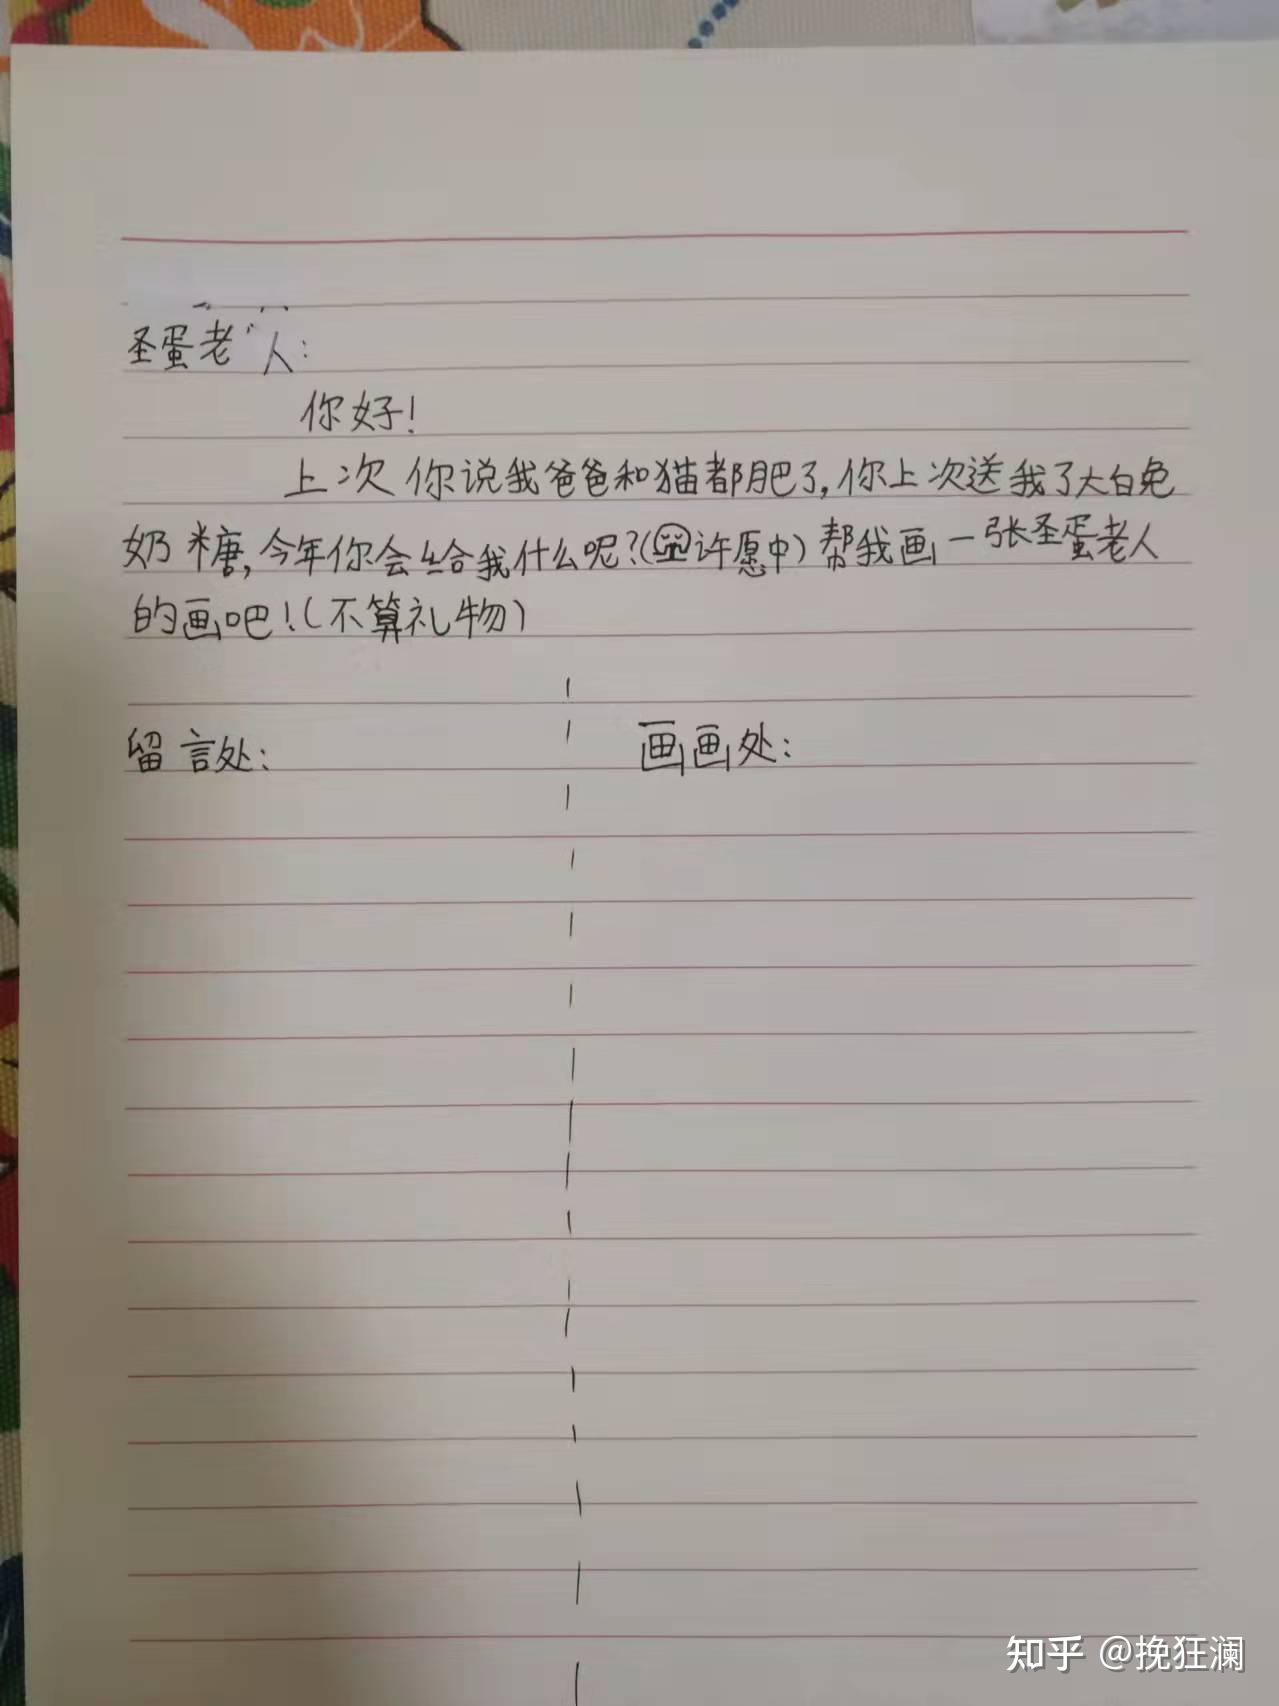 圣蛋老人：
你好！
上次你说我爸爸和猫都肥了，你上次送我了大白免
奶糖，今年你会给我什么呢？（许愿中）帮我画一张圣蛋老人
的画吧！（不算礼物）
留言处：
画画处：
知乎 @挽狂澜